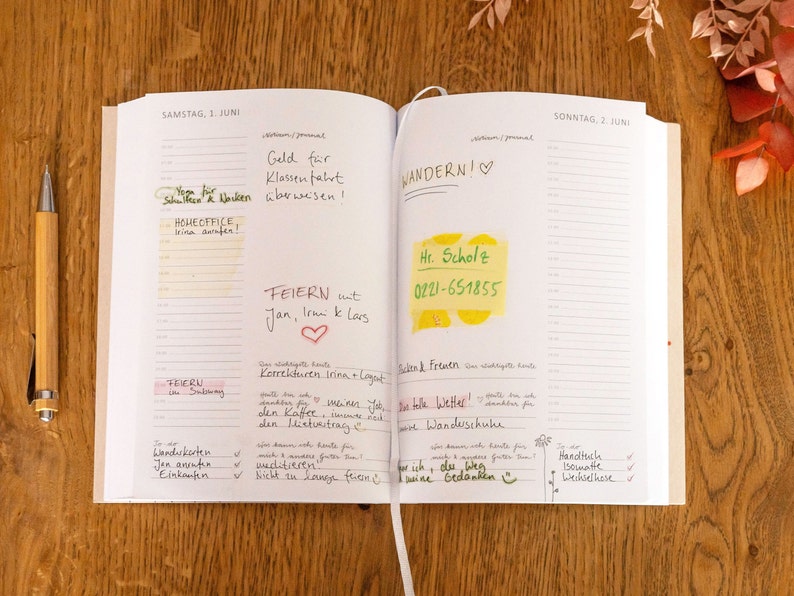 SAMSTAG, 1. JUNI
Yoga für
Schultern & Nacken
HOMEOFFICE,
Irina anrufen!
FEIERN
im Subway
To-do
Wanderkarten ✓
Jan anrufen ✓
Einkaufen ✓
Notizen/Journal
Geld für
Klassenfahrt
überweisen!
FEIERN mit
Jan, Irmi & Lars
Das Wichtigste heute
Korrekturen Irina + Layout
Heute bin ich
dankbar für
meinen Job,
den Kaffee, immer noch
den Mietvertrag
Was kann ich heute für
mich & andere Gutes tun?
meditieren
Nicht zu lange feiern
SONNTAG, 2. JUNI
Notizen/Journal
WANDERN! ♡
Hr. Scholz
0221-651855
& Freuen
Das Wichtigste heute
tolle Wetter!
Heute bin ich
dankbar für
Wanderschuhe
Was kann ich heute für
mich & andere Gutes tun?
ich, der Weg
meine Gedanken
To-do
Handtuch ✓
Isomatte ✓
Wechselhose ✓